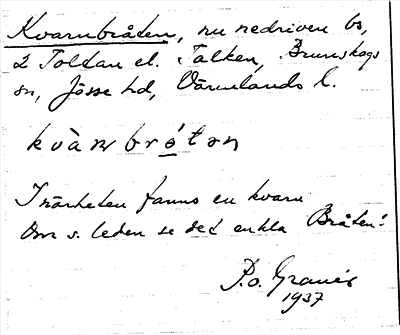 Kvarnbråten, nu nedriven bs,
2 Toltan el. Talken, Brunskogs
sn, Jösse hd, Värmlands l.
kvàɳbrǿ̱tən
I närheten fanns en kvarn
Om s. leden se det enkla Bråten!
P.o. Graner
1937